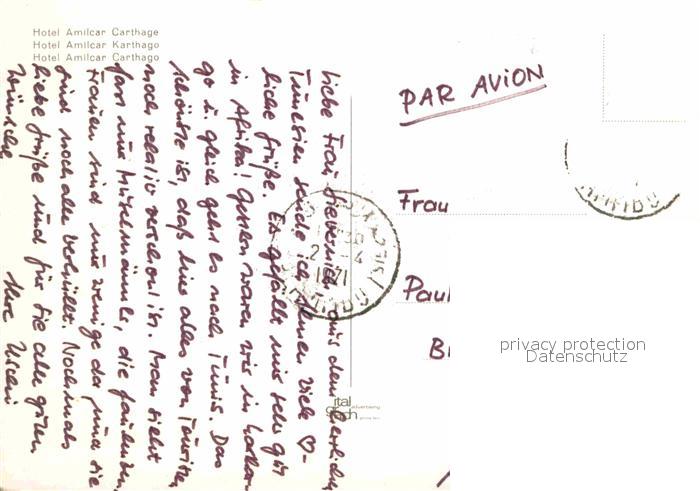 Hotel Amilcar Carthage
Hotel Amilcar Karthago
Hotel Amilcar Carthago
Liebe Frau aus dem
Tunesien sende ich Ihnen viele
liche Grüße. Es gefällt mir sehr gut
in Afrika! Gestern waren wir in
go u. gleich geht es nach Tunis. Das
Schönste ist, daß hier alles von Touristen
noch relativ verschont ist. Man sieht
fast nur die faulen
Frauen sind nur wenige da und die
sind noch alle verhüllt. Nochmals
liebe Grüße und für Sie alle guten
Wünsche
Ihre
PAR AVION
Frau
Paul
B
ital
graph
advertising
1971
privacy protection
Datenschutz